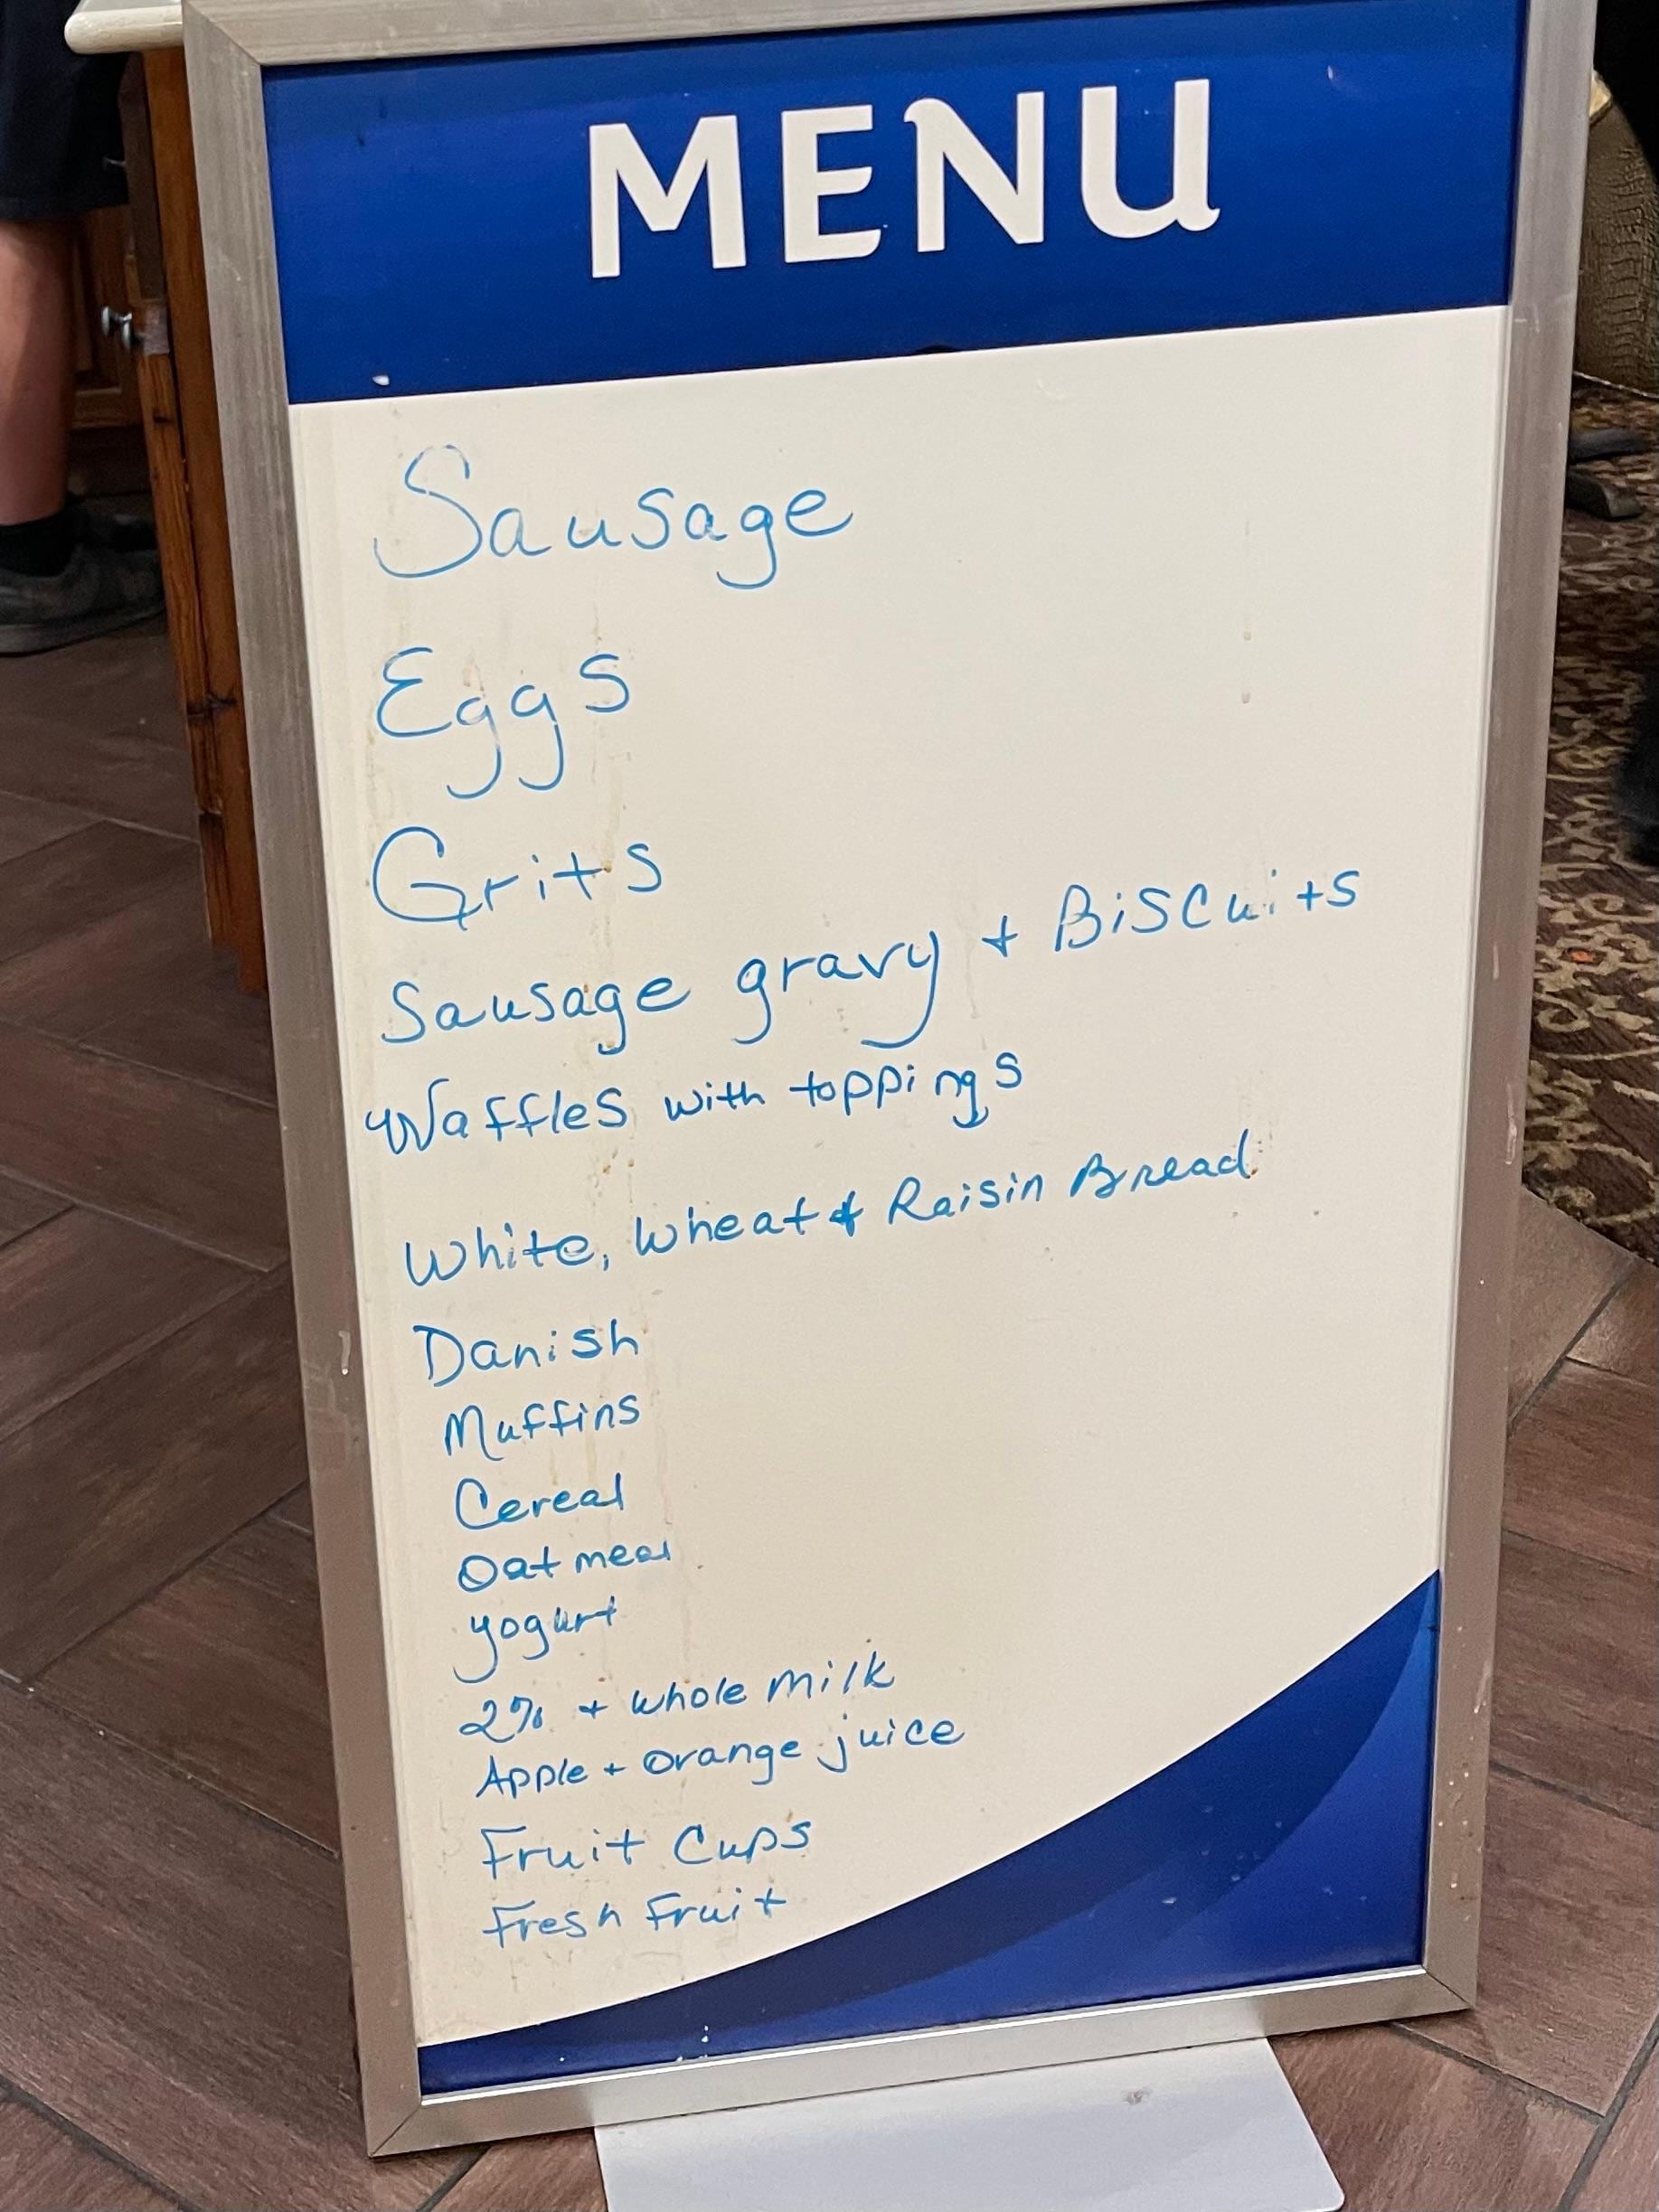 MENU
Sausage
Eggs
Grits
Sausage gravy + Biscuits
Waffles with toppings
White, Wheat & Raisin Bread
Danish
Muffins
Cereal
Oatmeal
yogurt
2% + whole milk
Apple + orange juice
Fruit Cups
Fresh Fruit